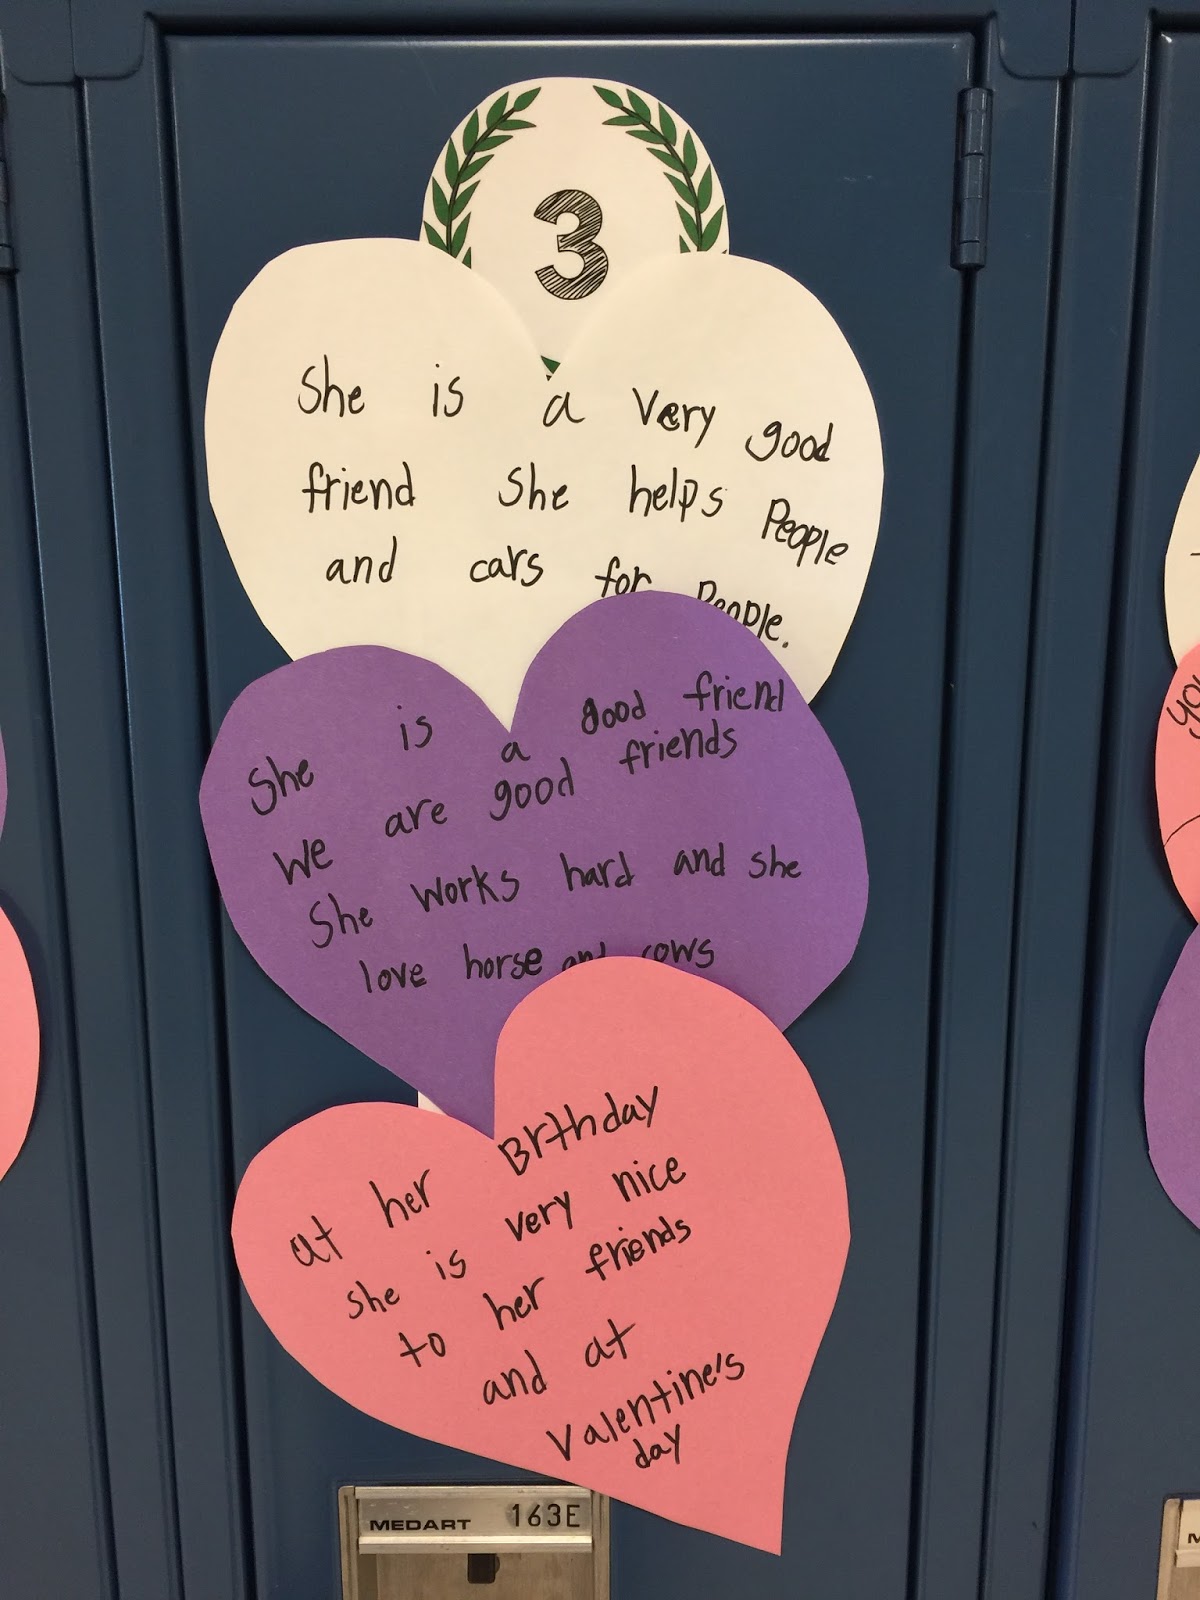 3
She is a very good
friend she helps People
and cars for People.
She is a good friend
we are good friends
She works hard and she
love horse and cows
at her Brthday
she is very nice
to her friends
and at
Valentine's
day
MEDART 163E
you
M